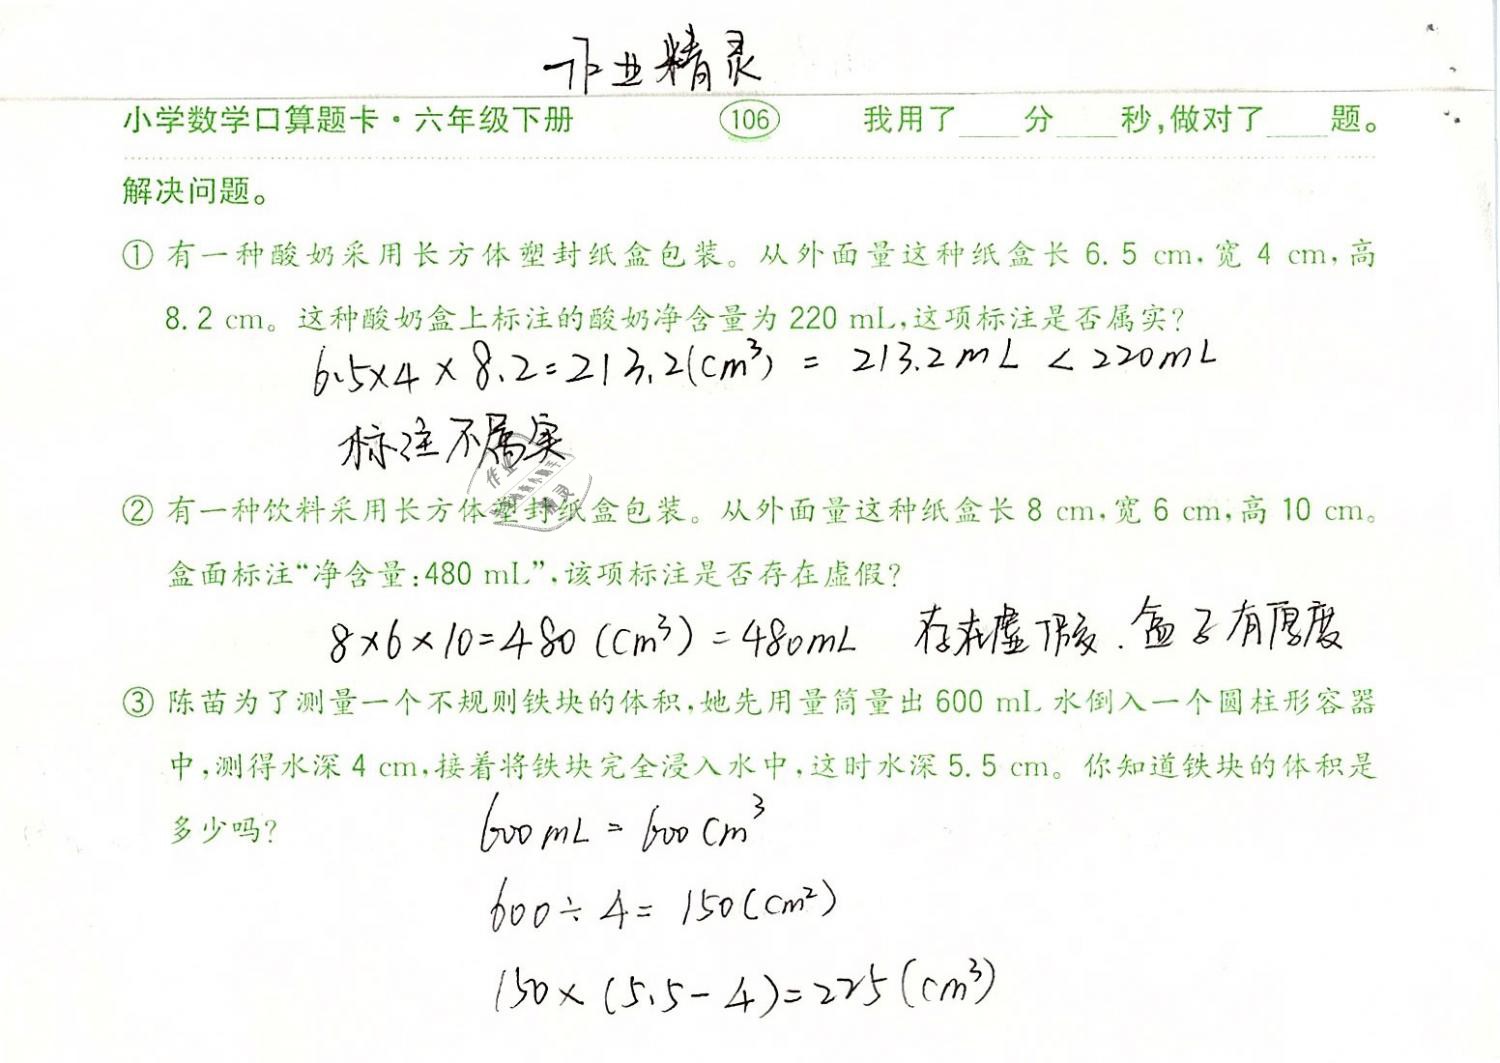 作业精灵
小学数学口算题卡·六年级下册 106 我用了____分____秒,做对了____题。
解决问题。
① 有一种酸奶采用长方体塑封纸盒包装。从外面量这种纸盒长 6.5 cm,宽 4 cm,高
8.2 cm。这种酸奶盒上标注的酸奶净含量为 220 mL,这项标注是否属实?
6.5×4×8.2=213.2(cm³) = 213.2mL < 220mL
标注不属实
② 有一种饮料采用长方体塑封纸盒包装。从外面量这种纸盒长 8 cm,宽 6 cm,高 10 cm。
盒面标注“净含量:480 mL”,该项标注是否存在虚假?
8×6×10=480(cm³)=480mL 存在虚假.盒子有厚度
③ 陈苗为了测量一个不规则铁块的体积,她先用量筒量出 600 mL 水倒入一个圆柱形容器
中,测得水深 4 cm,接着将铁块完全浸入水中,这时水深 5.5 cm。你知道铁块的体积是
多少吗?
600mL = 600cm³
600÷4= 150(cm²)
150×(5.5-4)=225(cm³)